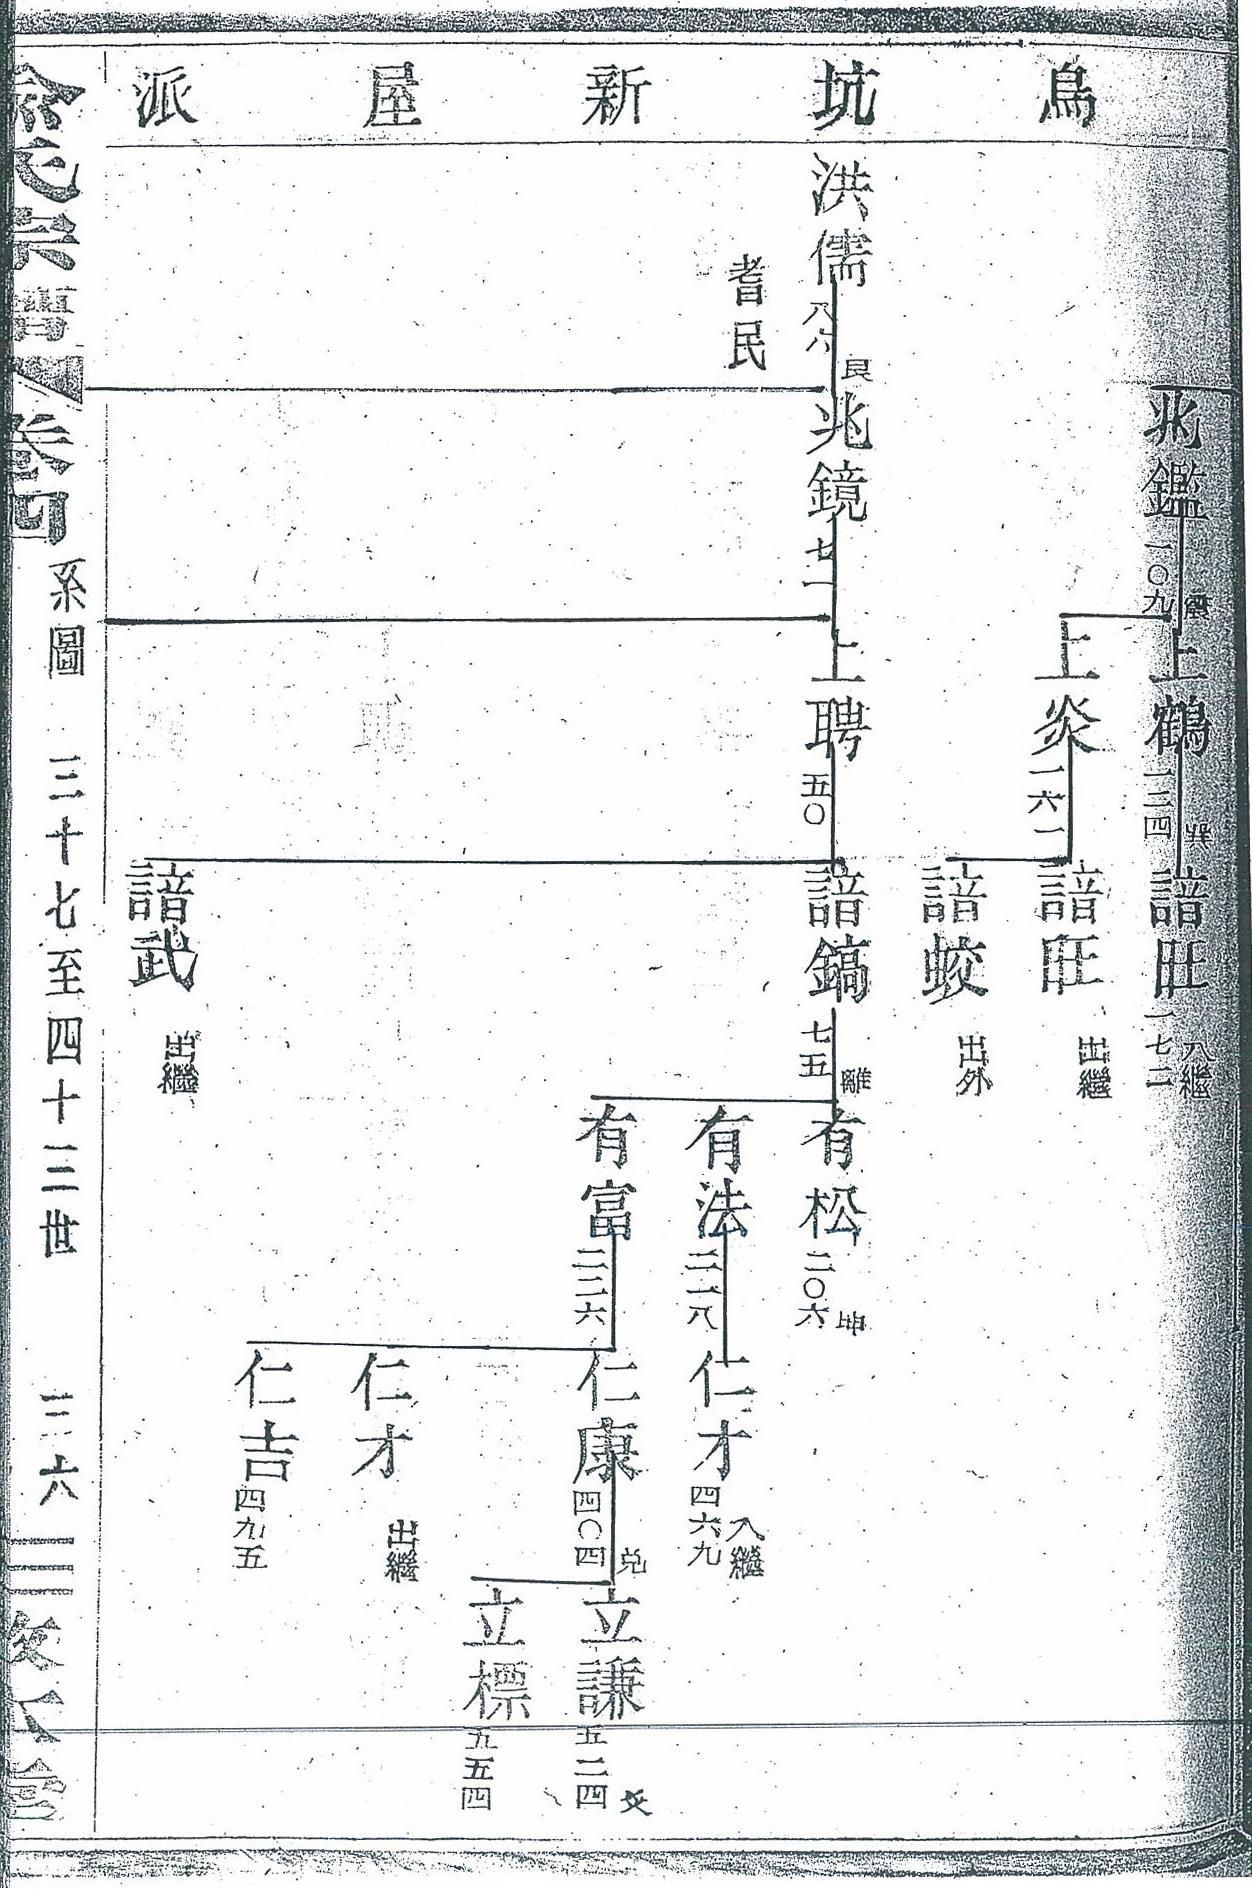 鳥坑新屋派
兆鑑 一〇九
上鶴 一二四 巽
諳旺 一七二 入繼
上炎 一六一
諳旺 出繼
諳蛟 出外
洪儒 八六 艮
耆民
兆鏡 七一
上聘 五〇
諳鎬 七五 離
諳武 出繼
有松 二〇六 坤
有法 二一八
有富 二二六
仁才 四六九 入繼
仁康 四〇四 兌
仁才 出繼
仁吉 四九五
立謙 五二四 爻
立標 五五四
俞氏宗譜 卷四 系圖 三十七至四十三世 三六